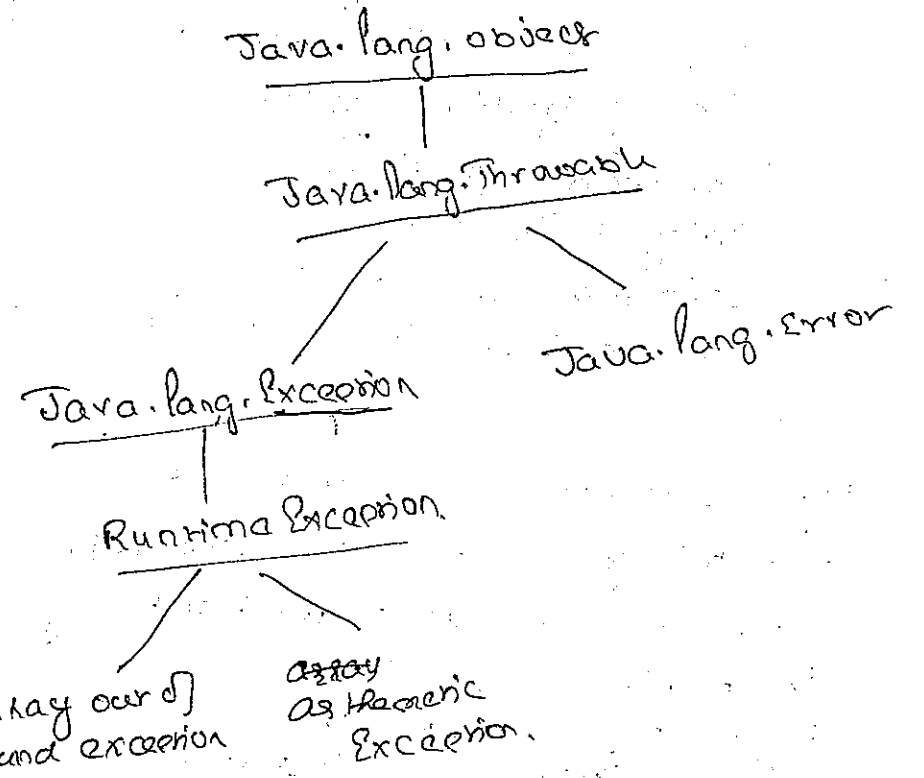 Java.lang.object
Java.lang.Throwable
Java.lang.Exception
Java.lang.Error
Runtime Exception.
ray out of
und exception
array
arthemetic
Exception.